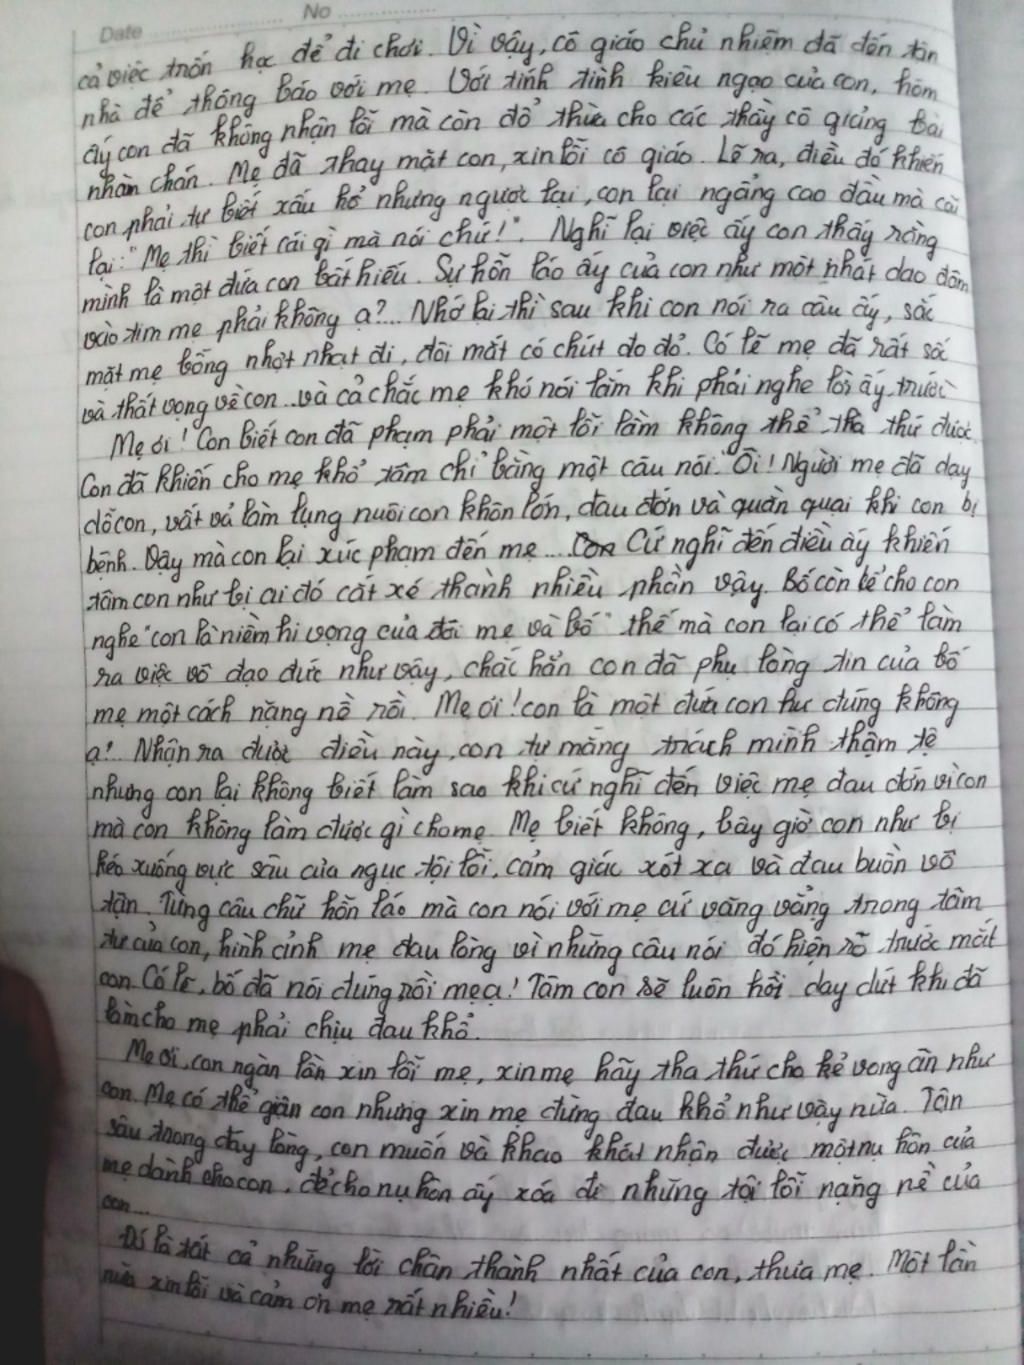 Date No
cả việc trốn học để đi chơi. Vì vậy, cô giáo chủ nhiệm đã đến tận
nhà để thông báo với mẹ. Với tính tình kiêu ngạo của con, hôm
ấy con đã không nhận lỗi mà còn đổ thừa cho các thầy cô giảng bài
nhàm chán. Mẹ đã thay mặt con, xin lỗi cô giáo. Lẽ ra, điều đó khiến
con phải tự biết xấu hổ nhưng ngược lại, con lại ngẩng cao đầu mà cãi
lại: "Mẹ thì biết cái gì mà nói chứ!". Nghĩ lại việc ấy con thấy rằng
mình là một đứa con bất hiếu. Sự hỗn láo ấy của con như một nhát dao đâm
vào tim mẹ phải không ạ?... Nhớ lại thì sau khi con nói ra câu ấy, sắc
mặt mẹ bỗng nhợt nhạt đi, đôi mắt có chút đo đỏ. Có lẽ mẹ đã rất sốc
và thất vọng về con...và cả chắc mẹ khó nói lắm khi phải nghe lời ấy trước
Mẹ ơi! Con biết con đã phạm phải một lỗi lầm không thể tha thứ được.
Con đã khiến cho mẹ khổ tâm chỉ bằng một câu nói. Ôi! Người mẹ đã dạy
dỗ con, vất vả làm lụng nuôi con khôn lớn, đau đớn và quằn quại khi con bị
bệnh. Vậy mà con lại xúc phạm đến mẹ... Cứ nghĩ đến điều ấy khiến
tâm con như bị ai đó cắt xé thành nhiều phần vậy. Bố còn kể cho con
nghe "con là niềm hi vọng của đời mẹ và bố" thế mà con lại có thể làm
ra việc vô đạo đức như vậy, chắc hẳn con đã phụ lòng tin của bố
mẹ một cách nặng nề rồi. Mẹ ơi! con là một đứa con hư đúng không
ạ!.. Nhận ra được điều này, con tự mắng trách mình thậm tệ
nhưng con lại không biết làm sao khi cứ nghĩ đến việc mẹ đau đớn vì con
mà con không làm được gì cho mẹ. Mẹ biết không, bây giờ con như bị
kéo xuống vực sâu của ngục tội lỗi, cảm giác xót xa và đau buồn vô
tận. Từng câu chữ hỗn láo mà con nói với mẹ cứ văng vẳng trong tâm
tư của con, hình ảnh mẹ đau lòng vì những câu nói đó hiện rõ trước mắt
con. Có lẽ, bố đã nói đúng rồi mẹ ạ! Tâm con sẽ luôn hồi day dứt khi đã
làm cho mẹ phải chịu đau khổ.
Mẹ ơi, con ngàn lần xin lỗi mẹ, xin mẹ hãy tha thứ cho kẻ vong ân như
con. Mẹ có thể giận con nhưng xin mẹ đừng đau khổ như vậy nữa. Tận
sâu trong đáy lòng, con muốn và khao khát nhận được một nụ hôn của
mẹ dành cho con, để cho nụ hôn ấy xóa đi những tội lỗi nặng nề của
con...
Đó là tất cả những lời chân thành nhất của con, thưa mẹ. Một lần
nữa xin lỗi và cảm ơn mẹ rất nhiều!